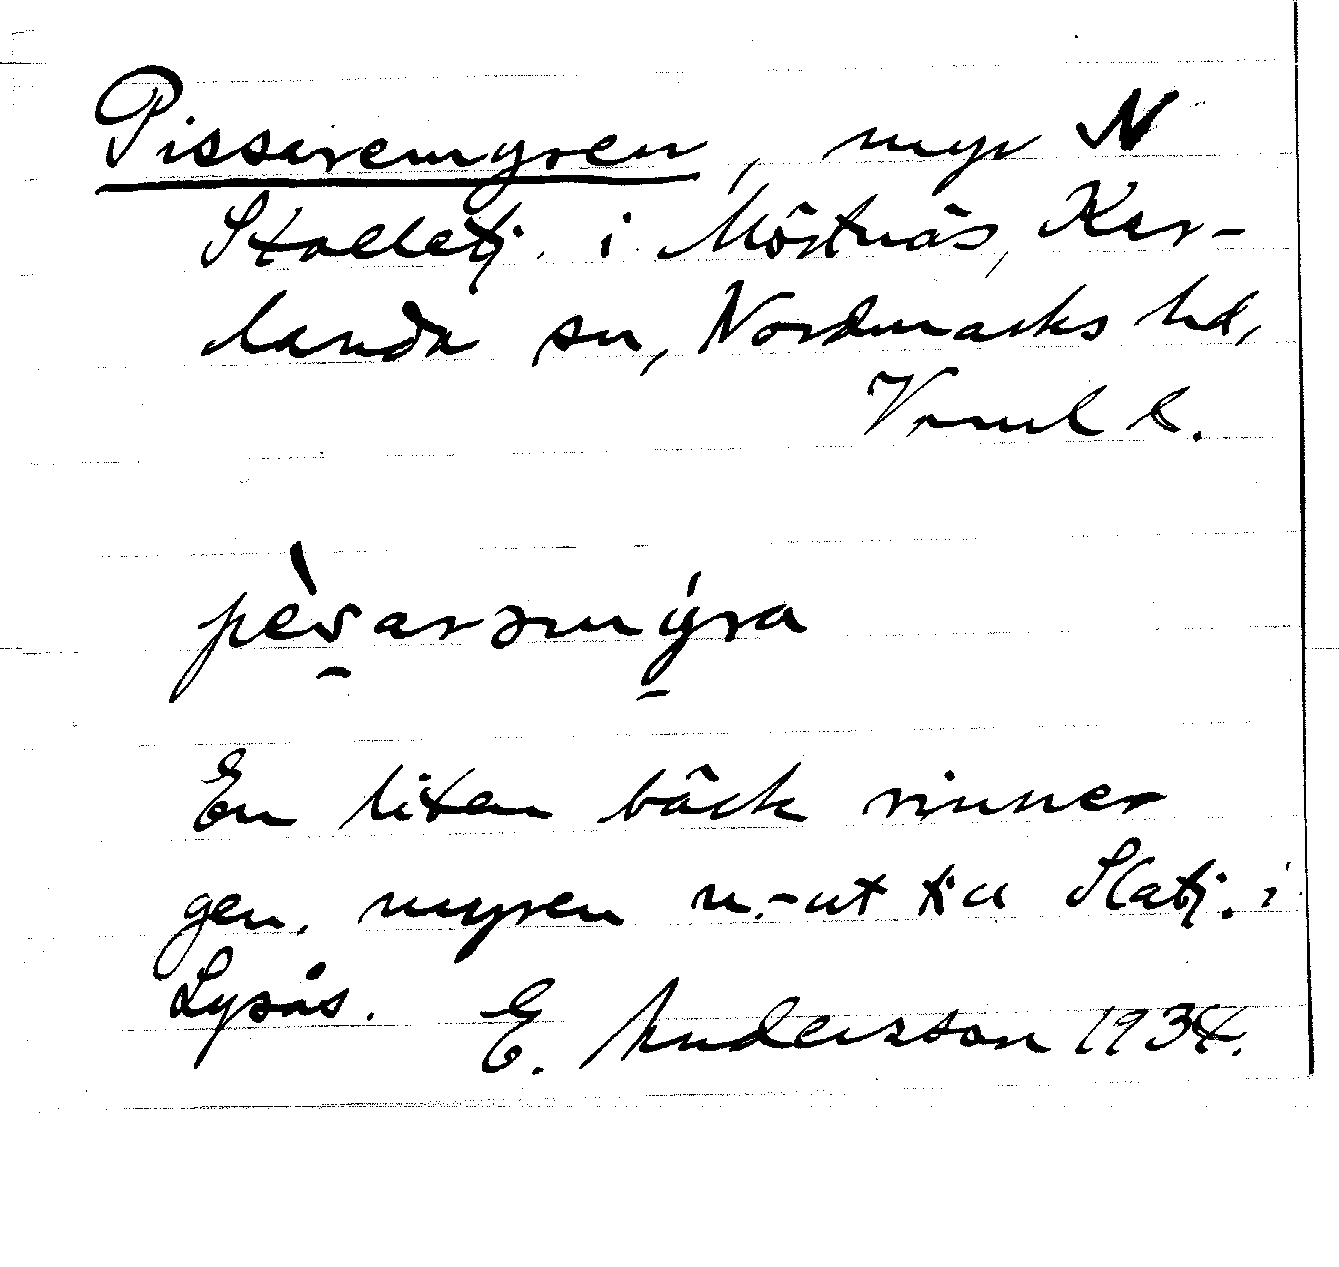 Pissaremyren, myr N
Stalletj. i Möstnäs, Kar-
landa sn, Nordmarks hd,
Vrml l.
pèsarəmýra
En liten bäck rinner
gen. myren n.-ut till Slatj. i
Lysås. E. Andersson 1934.